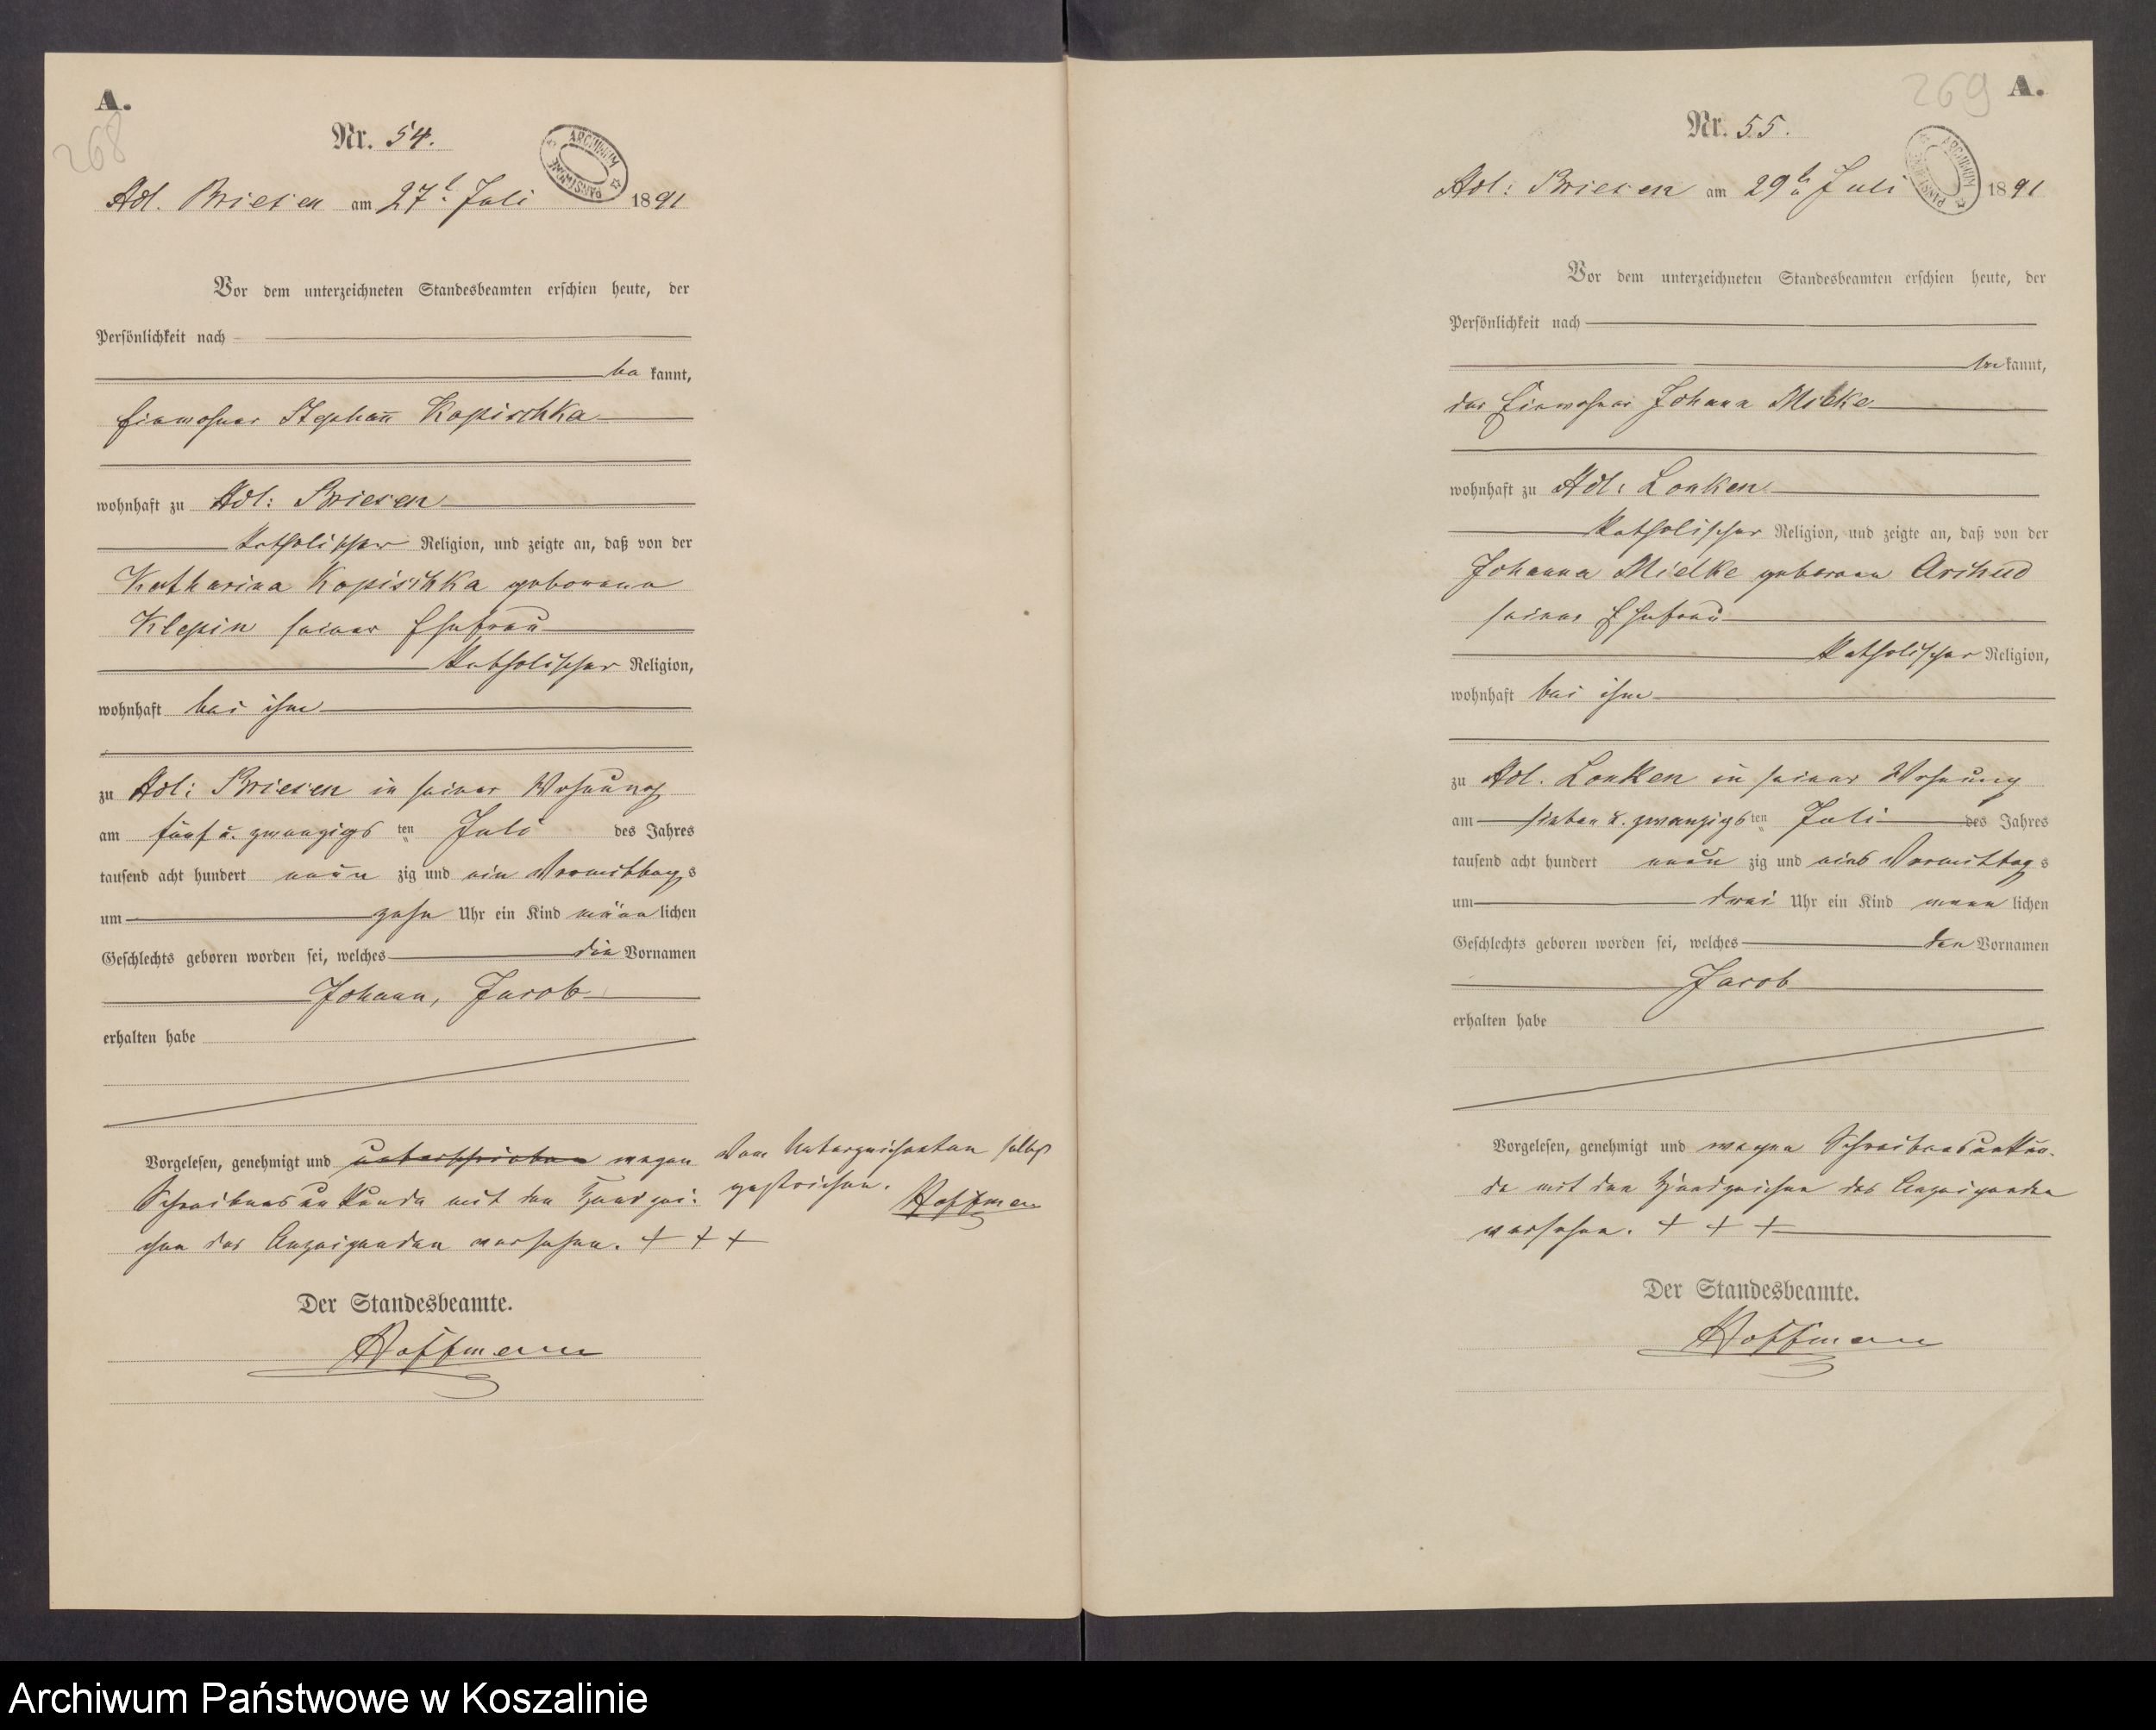 A.
268
Nr. 54.
ARCHIWUM PAŃSTWOWE
Adl. Briesen am 27t Juli 1891
Vor dem unterzeichneten Standesbeamten erschien heute, der
Persönlichkeit nach
be kannt,
Einwohner Stephan̄ Kopischka
wohnhaft zu Adl: Briesen
katholischer Religion, und zeigte an, daß von der
Katharina Kopischka geborene
Klepin seiner Ehefrau
katholischer Religion,
wohnhaft bei ihm
zu Adl: Briesen in seiner Wohnung
am fünf u. zwanzigs ten Juli des Jahres
tausend acht hundert neun zig und ein Vormittags
um zehn Uhr ein Kind männlichen
Geschlechts geboren worden sei, welches die Vornamen
Johann, Jacob
erhalten habe
Vorgelesen, genehmigt und unterschrieben wegen
Schreibensunkunde mit den Handzei-
chen des Anzeigenden versehen. + + +
Vom Unterzeichneten selbst
gestrichen. Hoffmann
Der Standesbeamte.
Hoffmann
269 A.
Nr. 55.
ARCHIWUM PAŃSTWOWE
Adl: Briesen am 29ten Juli 1891
Vor dem unterzeichneten Standesbeamten erschien heute, der
Persönlichkeit nach
bekannt,
der Einwohner Johann Mielke
wohnhaft zu Adl: Lonken
katholischer Religion, und zeigte an, daß von der
Johanna Mielke geborenen
seiner Ehefrau
katholischer Religion,
wohnhaft bei ihm
zu Adl. Lonken in seiner Wohnung
am sieben u. zwanzigsten Juli des Jahres
tausend acht hundert neun zig und eins Vormittags
um drei Uhr ein Kind männlichen
Geschlechts geboren worden sei, welches den Vornamen
Jacob
erhalten habe
Vorgelesen, genehmigt und wegen Schreibensunkun-
de mit den Handzeichen des Anzeigenden
versehen. + + +
Der Standesbeamte.
Hoffmann
Archiwum Państwowe w Koszalinie